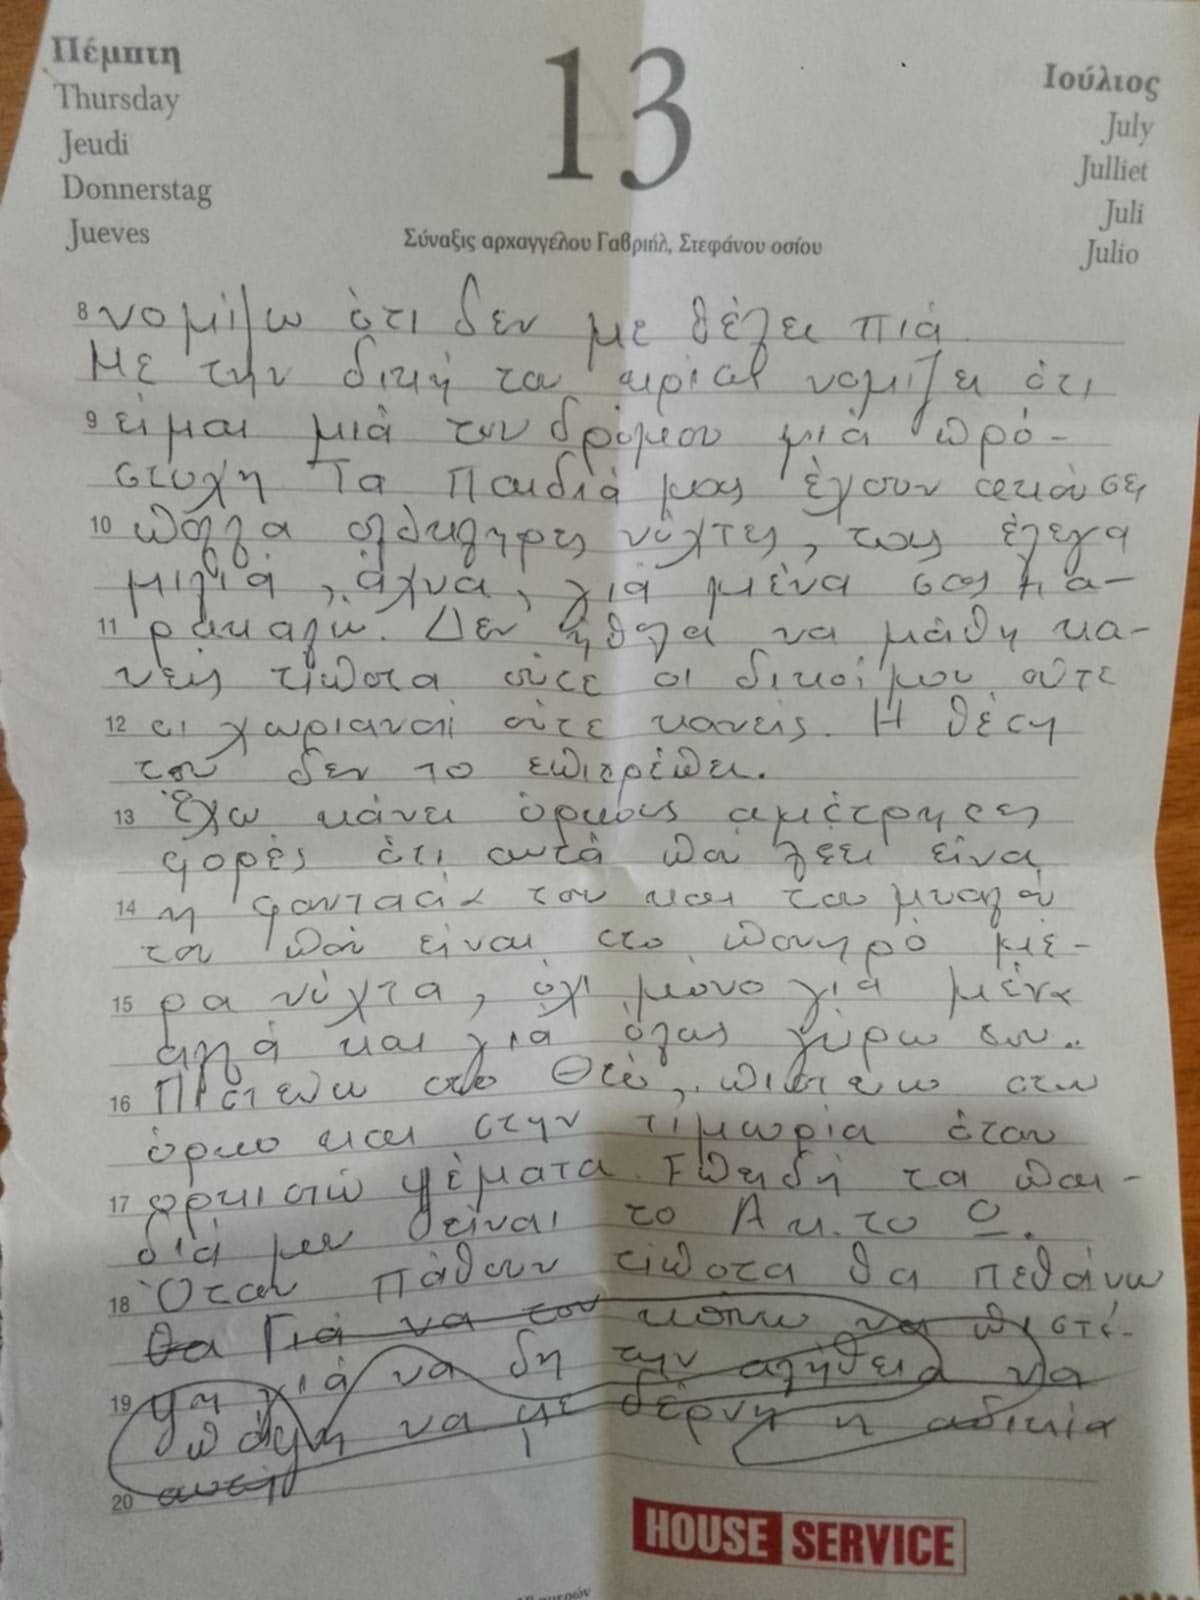 Πέμπτη
Thursday
Jeudi
Donnerstag
Jueves
13
Ιούλιος
July
Julliet
Juli
Julio
Σύναξις αρχαγγέλου Γαβριήλ, Στεφάνου οσίου
8 νομίζω ότι δεν με θέλει πιά
Με την δική του νομίζει ότι
9 είμαι μιά του δρόμου μιά πρό-
στυχη Τα Παιδιά μας έχουν
10 πολλά ολόκληρες νύχτες, τους έλεγα
μιλιά, άχνα, γιά μένα σας πα-
11 ρακαλώ. Δεν ήθελα να μάθη κα-
νείς τίποτα ούτε οι δικοί μου ούτε
12 οι χωριανοί ούτε κανείς. Η θέση
του δεν το επιτρέπει.
13 Έχω κάνει όρκους αμέτρητες
φορές ότι αυτά που λέει είναι
14 η φαντασία του και του μυαλού
του που είναι στο πονηρό μέ-
15 ρα νύχτα, όχι μόνο γιά μένα
αλλά και γιά όλους γύρω του..
16 Πιστεύω στο Θεό, πιστεύω στον
όρκο και στην τιμωρία όταν
17 ορκιστώ ψέματα. Επειδή τα παι-
διά μου είναι το Α κ. το Ω.
18 Όταν πάθουν τίποτα θα πεθάνω
θα Γιά να τον κάνω να πιστέ-
19 ψη γιά να δη την αλήθεια να
πάψη να με δέρνη η αδικία
20 αυτή
HOUSE SERVICE